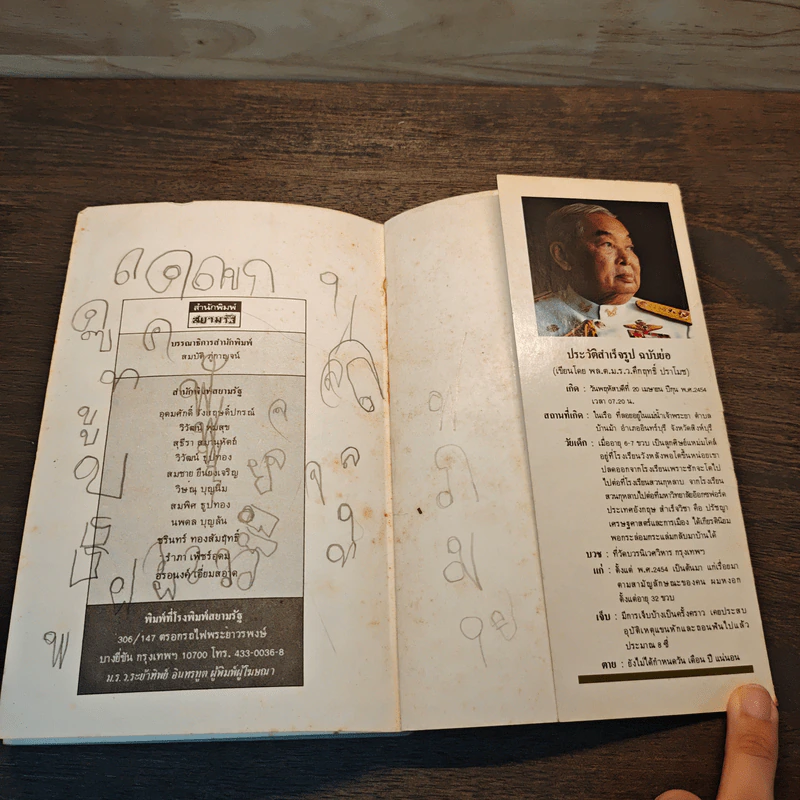 สำนักพิมพ์
สยามรัฐ
บรรณาธิการสำนักพิมพ์
สมบัติ ภู่กาญจน์
สำนักพิมพ์สยามรัฐ
อุดมศักดิ์
วิวัฒน์
สุธีรา
วิวัฒน์ รูปทอง
สมชาย ยืนยงเจริญ
วิษณุ บุญนิ่ม
สมพิศ รูปทอง
นพดล บุญลัน
ชูรินทร์ ทองสัมฤทธิ์
รำภา เพ็ชร์อุดม
อรอนงค์ เอี่ยมสอาด
พิมพ์ที่โรงพิมพ์สยามรัฐ
306/147 ตรอกรถไฟพระยาวรพงษ์
บางยี่ขัน กรุงเทพฯ 10700 โทร. 433-0036-8
ม.ร.ว.ระย้าทิพย์ อินทรทูต ผู้พิมพ์ผู้โฆษณา
ประวัติสำเร็จรูป ฉบับย่อ
(เขียนโดย พล.ต.ม.ร.ว.คึกฤทธิ์ ปราโมช)
เกิด : วันพฤหัสบดีที่ 20 เมษายน ปีกุน พ.ศ.2454
เวลา 07.20 น.
สถานที่เกิด : ในเรือ ที่ลอยอยู่ในแม่น้ำเจ้าพระยา ตำบล
บ้านม้า อำเภออินทร์บุรี จังหวัดสิงห์บุรี
วัยเด็ก : เมื่ออายุ 6-7 ขวบ เป็นลูกศิษย์แหม่มโคล์
อยู่ที่โรงเรียนวังหลังพอโตขึ้นหน่อยเขา
ปลดออกจากโรงเรียนเพราะชักจะโตไป
ไปต่อที่โรงเรียนสวนกุหลาบ จากโรงเรียน
สวนกุหลาบไปต่อที่มหาวิทยาลัยอ๊อกซฟอร์ด
ประเทศอังกฤษ สำเร็จวิชา คือ ปรัชญา
เศรษฐศาสตร์และการเมือง ได้เกียรตินิยม
พอกระล่อมกระแล่มกลับมาบ้านได้
บวช : ที่วัดบวรนิเวศวิหาร กรุงเทพฯ
แก่ : ตั้งแต่ พ.ศ.2454 เป็นต้นมา แก่เรื่อยมา
ตามสามัญลักษณะของคน ผมหงอก
ตั้งแต่อายุ 32 ขวบ
เจ็บ : มีการเจ็บบ้างเป็นครั้งคราว เคยประสบ
อุบัติเหตุแขนหักและถอนฟันไปแล้ว
ประมาณ 8 ซี่
ตาย : ยังไม่ได้กำหนดวัน เดือน ปี แน่นอน